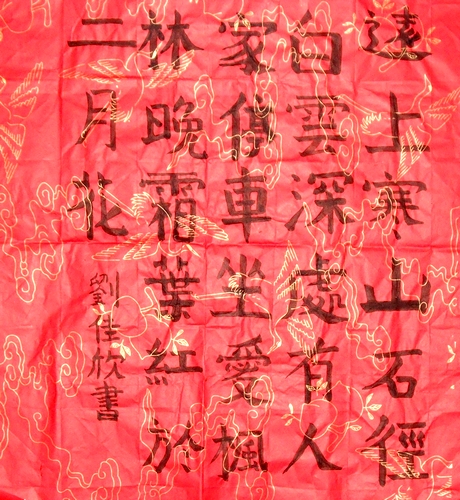 遠上寒山石徑
白雲深處有人
家停車坐愛楓
林晚霜葉紅於
二月花
劉佳欣書